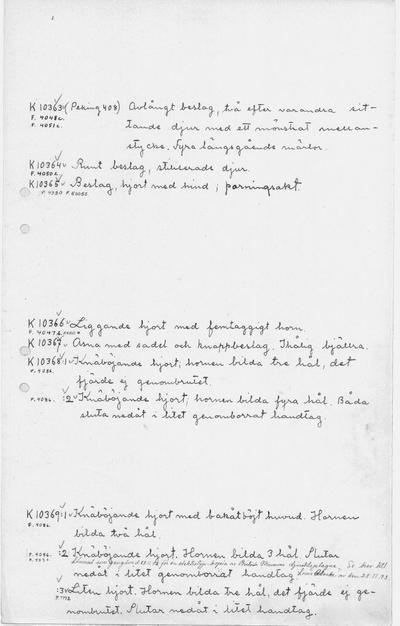 K 10363 (Peking 408) Avlångt beslag, två efter varandra sit-
F. 4048c.
F. 4051c.
tande djur med ett mönstrat mellan-
stycke. Fyra längsgående märlor.
K 10364 Runt beslag, stiliserade djur.
F. 4050c.
K 10365 Beslag, hjort med hind i parningsakt.
K 10366 Liggande hjort med femtaggigt horn.
K 10367 Åsna med sadel och knappbeslag. Ihålig bjällra.
K 10368:1 Knäböjande hjort, hornen bilda tre hål, det
F. 4086.
fjärde ej genombrutet.
F. 4086. :2 Knäböjande hjort, hornen bilda fyra hål. Båda
sluta nedåt i litet genomborrat handtag.
K 10369:1 Knäböjande hjort med bakåtböjt huvud. Hornen
F. 4086.
bilda två hål.
F. 4086. :2 Knäböjande hjort. Hornen bilda 3 hål. Slutar
nedåt i litet genomborrat handtag
:3 Liten hjort. Hornen bilda tre hål, det fjärde ej ge-
nombrutet. Slutar nedåt i litet handtag.